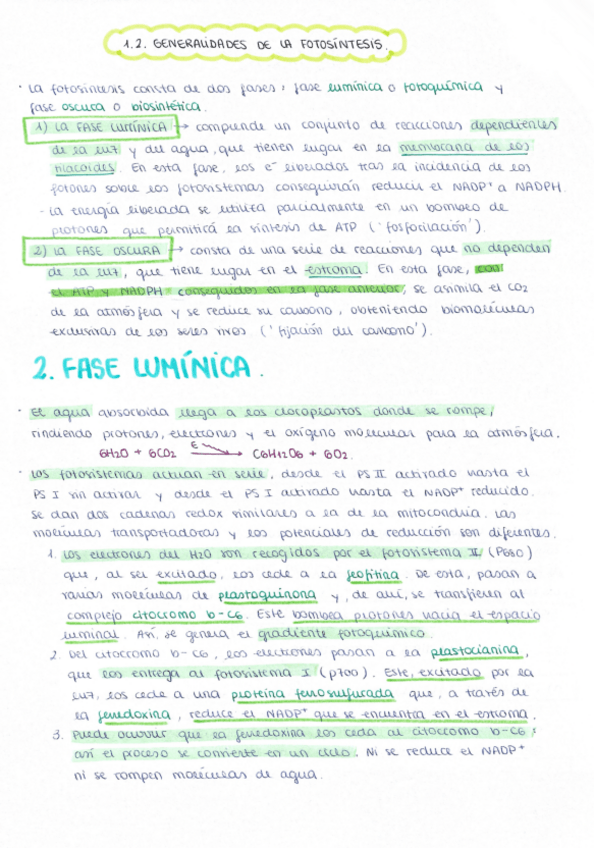 1.2. GENERALIDADES DE LA FOTOSÍNTESIS.
· La fotosíntesis consta de dos fases: fase lumínica o fotoquímica y
fase oscura o biosintética.
1) LA FASE LUMÍNICA → comprende un conjunto de reacciones dependientes
de la luz y del agua, que tienen lugar en la membrana de los
tilacoides. En esta fase, los e⁻ liberados tras la incidencia de los
fotones sobre los fotosistemas conseguirán reducir el NADP⁺ a NADPH.
- La energía liberada se utiliza parcialmente en un bombeo de
protones que permitirá la síntesis de ATP ('fosforilación').
2) LA FASE OSCURA → consta de una serie de reacciones que no dependen
de la luz, que tiene lugar en el estroma. En esta fase, con
el ATP y NADPH conseguidos en la fase anterior, se asimila el CO2
de la atmósfera y se reduce su carbono, obteniendo biomoléculas
exclusivas de los seres vivos ('fijación del carbono').
2. FASE LUMÍNICA.
· El agua absorbida llega a los cloroplastos donde se rompe,
rindiendo protones, electrones y el oxígeno molecular para la atmósfera.
6H2O + 6CO2 E→ C6H12O6 + 6O2.
· Los fotosistemas actúan en serie, desde el PS II activado hasta el
PS I sin activar y desde el PS I activado hasta el NADP⁺ reducido.
Se dan dos cadenas redox similares a la de la mitocondria. Las
moléculas transportadoras y los potenciales de reducción son diferentes.
1. Los electrones del H2O son recogidos por el fotosistema II (P680)
que, al ser excitado, los cede a la feofitina. De esta, pasan a
varias moléculas de plastoquinona y, de aquí, se transfieren al
complejo citocromo b-c6. Este bombea protones hacia el espacio
luminal. Así, se genera el gradiente fotoquímico.
2. Del citocromo b-c6, los electrones pasan a la plastocianina,
que los entrega al fotosistema I (p700). Este, excitado por la
luz, los cede a una proteína ferrosulfurada que, a través de
la ferredoxina, reduce el NADP⁺ que se encuentra en el estroma.
3. Puede ocurrir que la ferredoxina los ceda al citocromo b-c6:
así el proceso se convierte en un ciclo. Ni se reduce el NADP⁺
ni se rompen moléculas de agua.